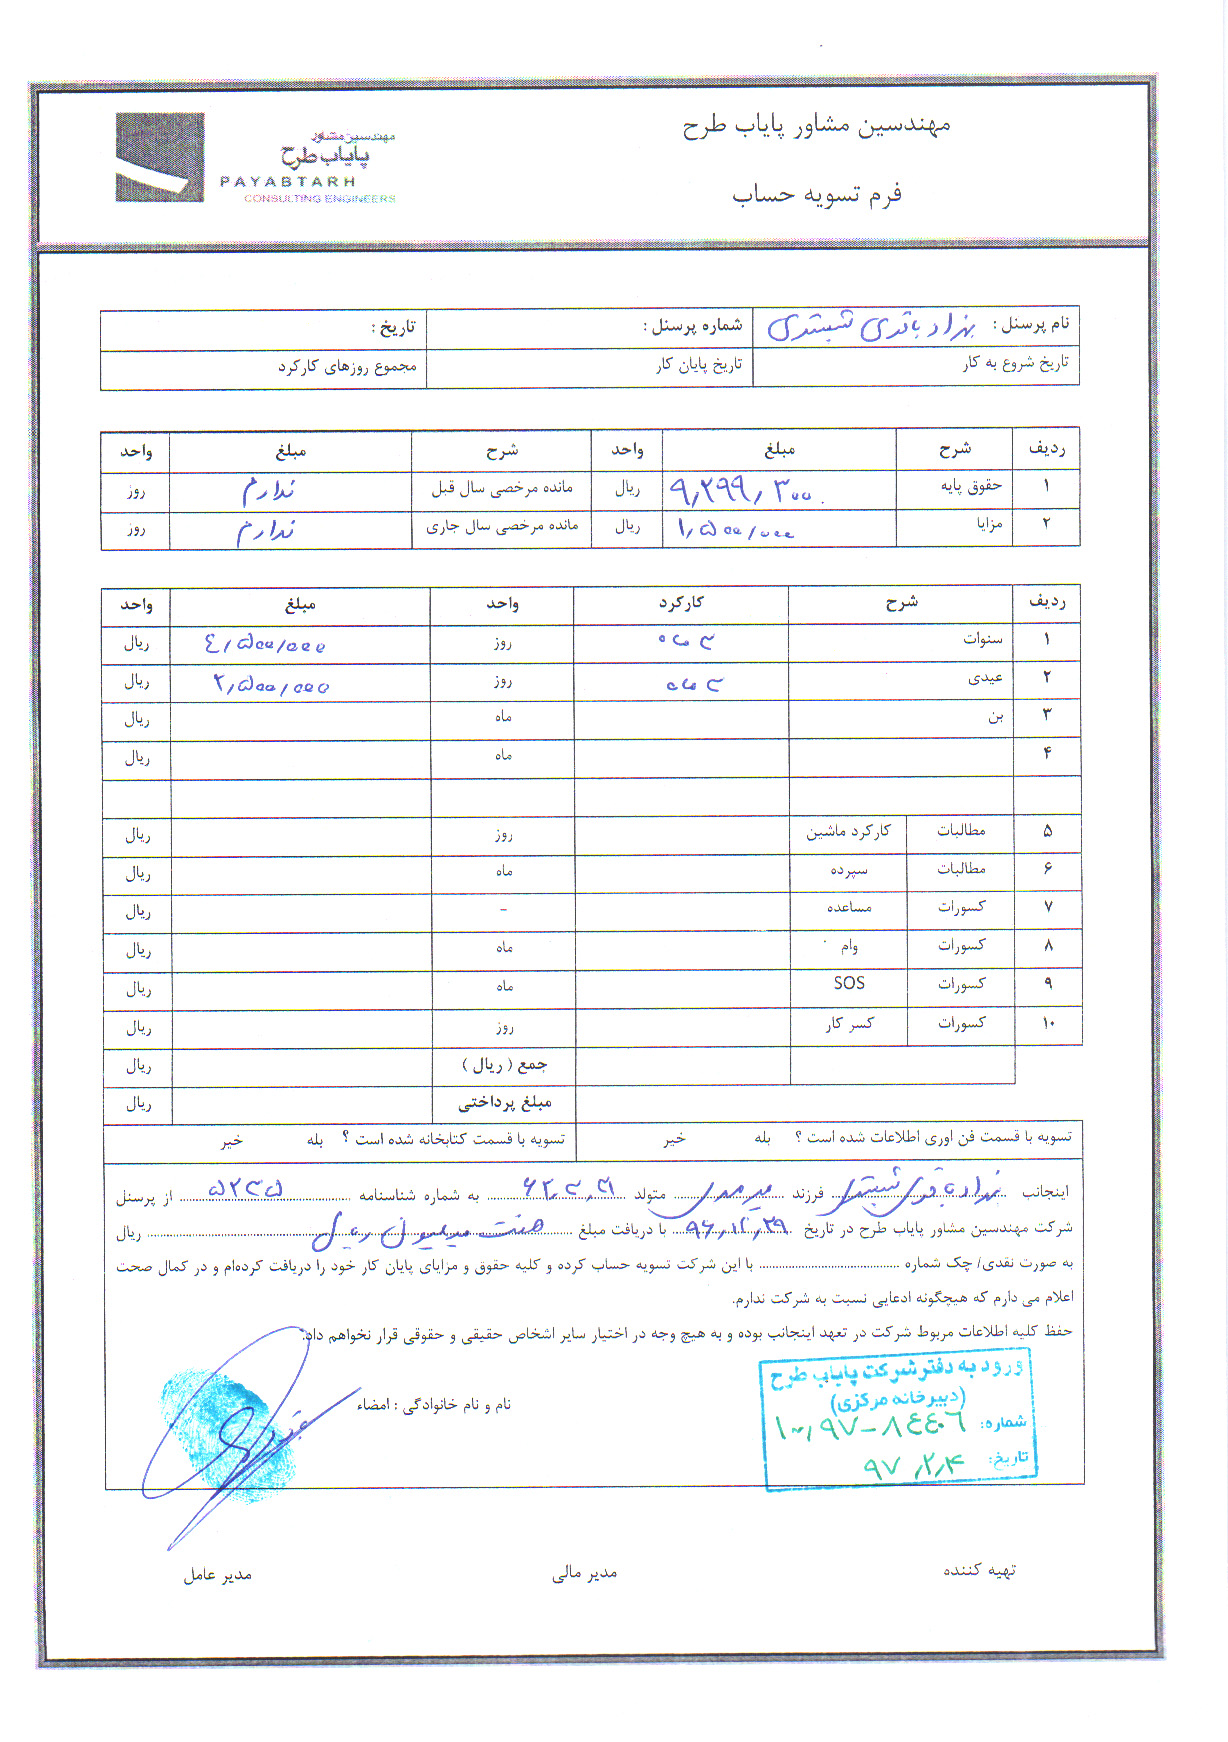 مهندسین مشاور پایاب طرح
فرم تسویه حساب
مهندسین مشاور
پایاب طرح
PAYABTARH
CONSULTING ENGINEERS
نام پرسنل : بهزاد باقری شبستری شماره پرسنل : تاریخ :
تاریخ شروع به کار تاریخ پایان کار مجموع روزهای کارکرد
ردیف شرح مبلغ واحد شرح مبلغ واحد
۱ حقوق پایه ۹,۲۹۹,۳۰۰ ریال مانده مرخصی سال قبل ندارم روز
۲ مزایا ۱,۵۰۰/۰۰۰ ریال مانده مرخصی سال جاری ندارم روز
ردیف شرح کارکرد واحد مبلغ واحد
۱ سنوات روز ٤/۵۰۰/۰۰۰ ریال
۲ عیدی روز ۲,۵۰۰/۰۰۰ ریال
۳ بن ماه ریال
۴ ماه ریال
۵ مطالبات کارکرد ماشین روز ریال
۶ مطالبات سپرده ماه ریال
۷ کسورات مساعده - ریال
۸ کسورات وام ماه ریال
۹ کسورات SOS ماه ریال
۱۰ کسورات کسر کار روز ریال
جمع ( ریال ) ریال
مبلغ پرداختی ریال
تسویه با قسمت فن اوری اطلاعات شده است ؟ بله خیر تسویه با قسمت کتابخانه شده است ؟ بله خیر
اینجانب بهزاد باقری شبستری فرزند متولد به شماره شناسنامه از پرسنل
شرکت مهندسین مشاور پایاب طرح در تاریخ ۹۶,۱۲,۲۹ با دریافت مبلغ هفت میلیون ریال ریال
به صورت نقدی/ چک شماره با این شرکت تسویه حساب کرده و کلیه حقوق و مزایای پایان کار خود را دریافت کرده‌ام و در کمال صحت
اعلام می دارم که هیچگونه ادعایی نسبت به شرکت ندارم.
حفظ کلیه اطلاعات مربوط شرکت در تعهد اینجانب بوده و به هیچ وجه در اختیار سایر اشخاص حقیقی و حقوقی قرار نخواهم داد.
نام و نام خانوادگی : امضاء
ورود به دفتر شرکت پایاب طرح
(دبیرخانه مرکزی)
شماره: ۱۰۰,۹۷-۸٤٤۰٦
تاریخ: ۹۷,۲,۴
تهیه کننده مدیر مالی مدیر عامل